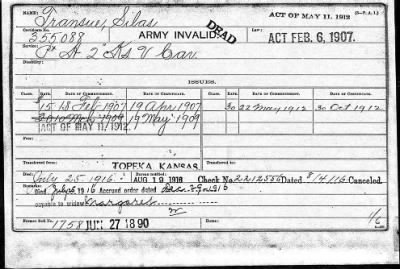 ACT OF MAY 11, 1912 (3—P. A. I.)
Name: Transue, Silas
Certificate No. 355088 ARMY INVALID DEAD Law: ACT FEB. 6, 1907.
Service: Pt. A 2" Ks V Cav
Disability:
ISSUES.
CLASS. RATE. DATE OF COMMENCEMENT. DATE OF CERTIFICATE. CLASS. RATE. DATE OF COMMENCEMENT. DATE OF CERTIFICATE.
$15 18 Feb 1907 19 Apr 1907 30 22 May 1912 30 Oct 1912
20 1909 19 May 1909
ACT OF MAY 11, 1912.
Transferred from: Transferred to:
TOPEKA, KANSAS
Died July 25 1916. Bureau notified: AUG 19 1916 Check No 2212555 Dated 8/4/16 Canceled.
Died July 1916 Accrued order dated 1916
payable to widow Margaret
Former Roll No. 1758 JUN 27 1890